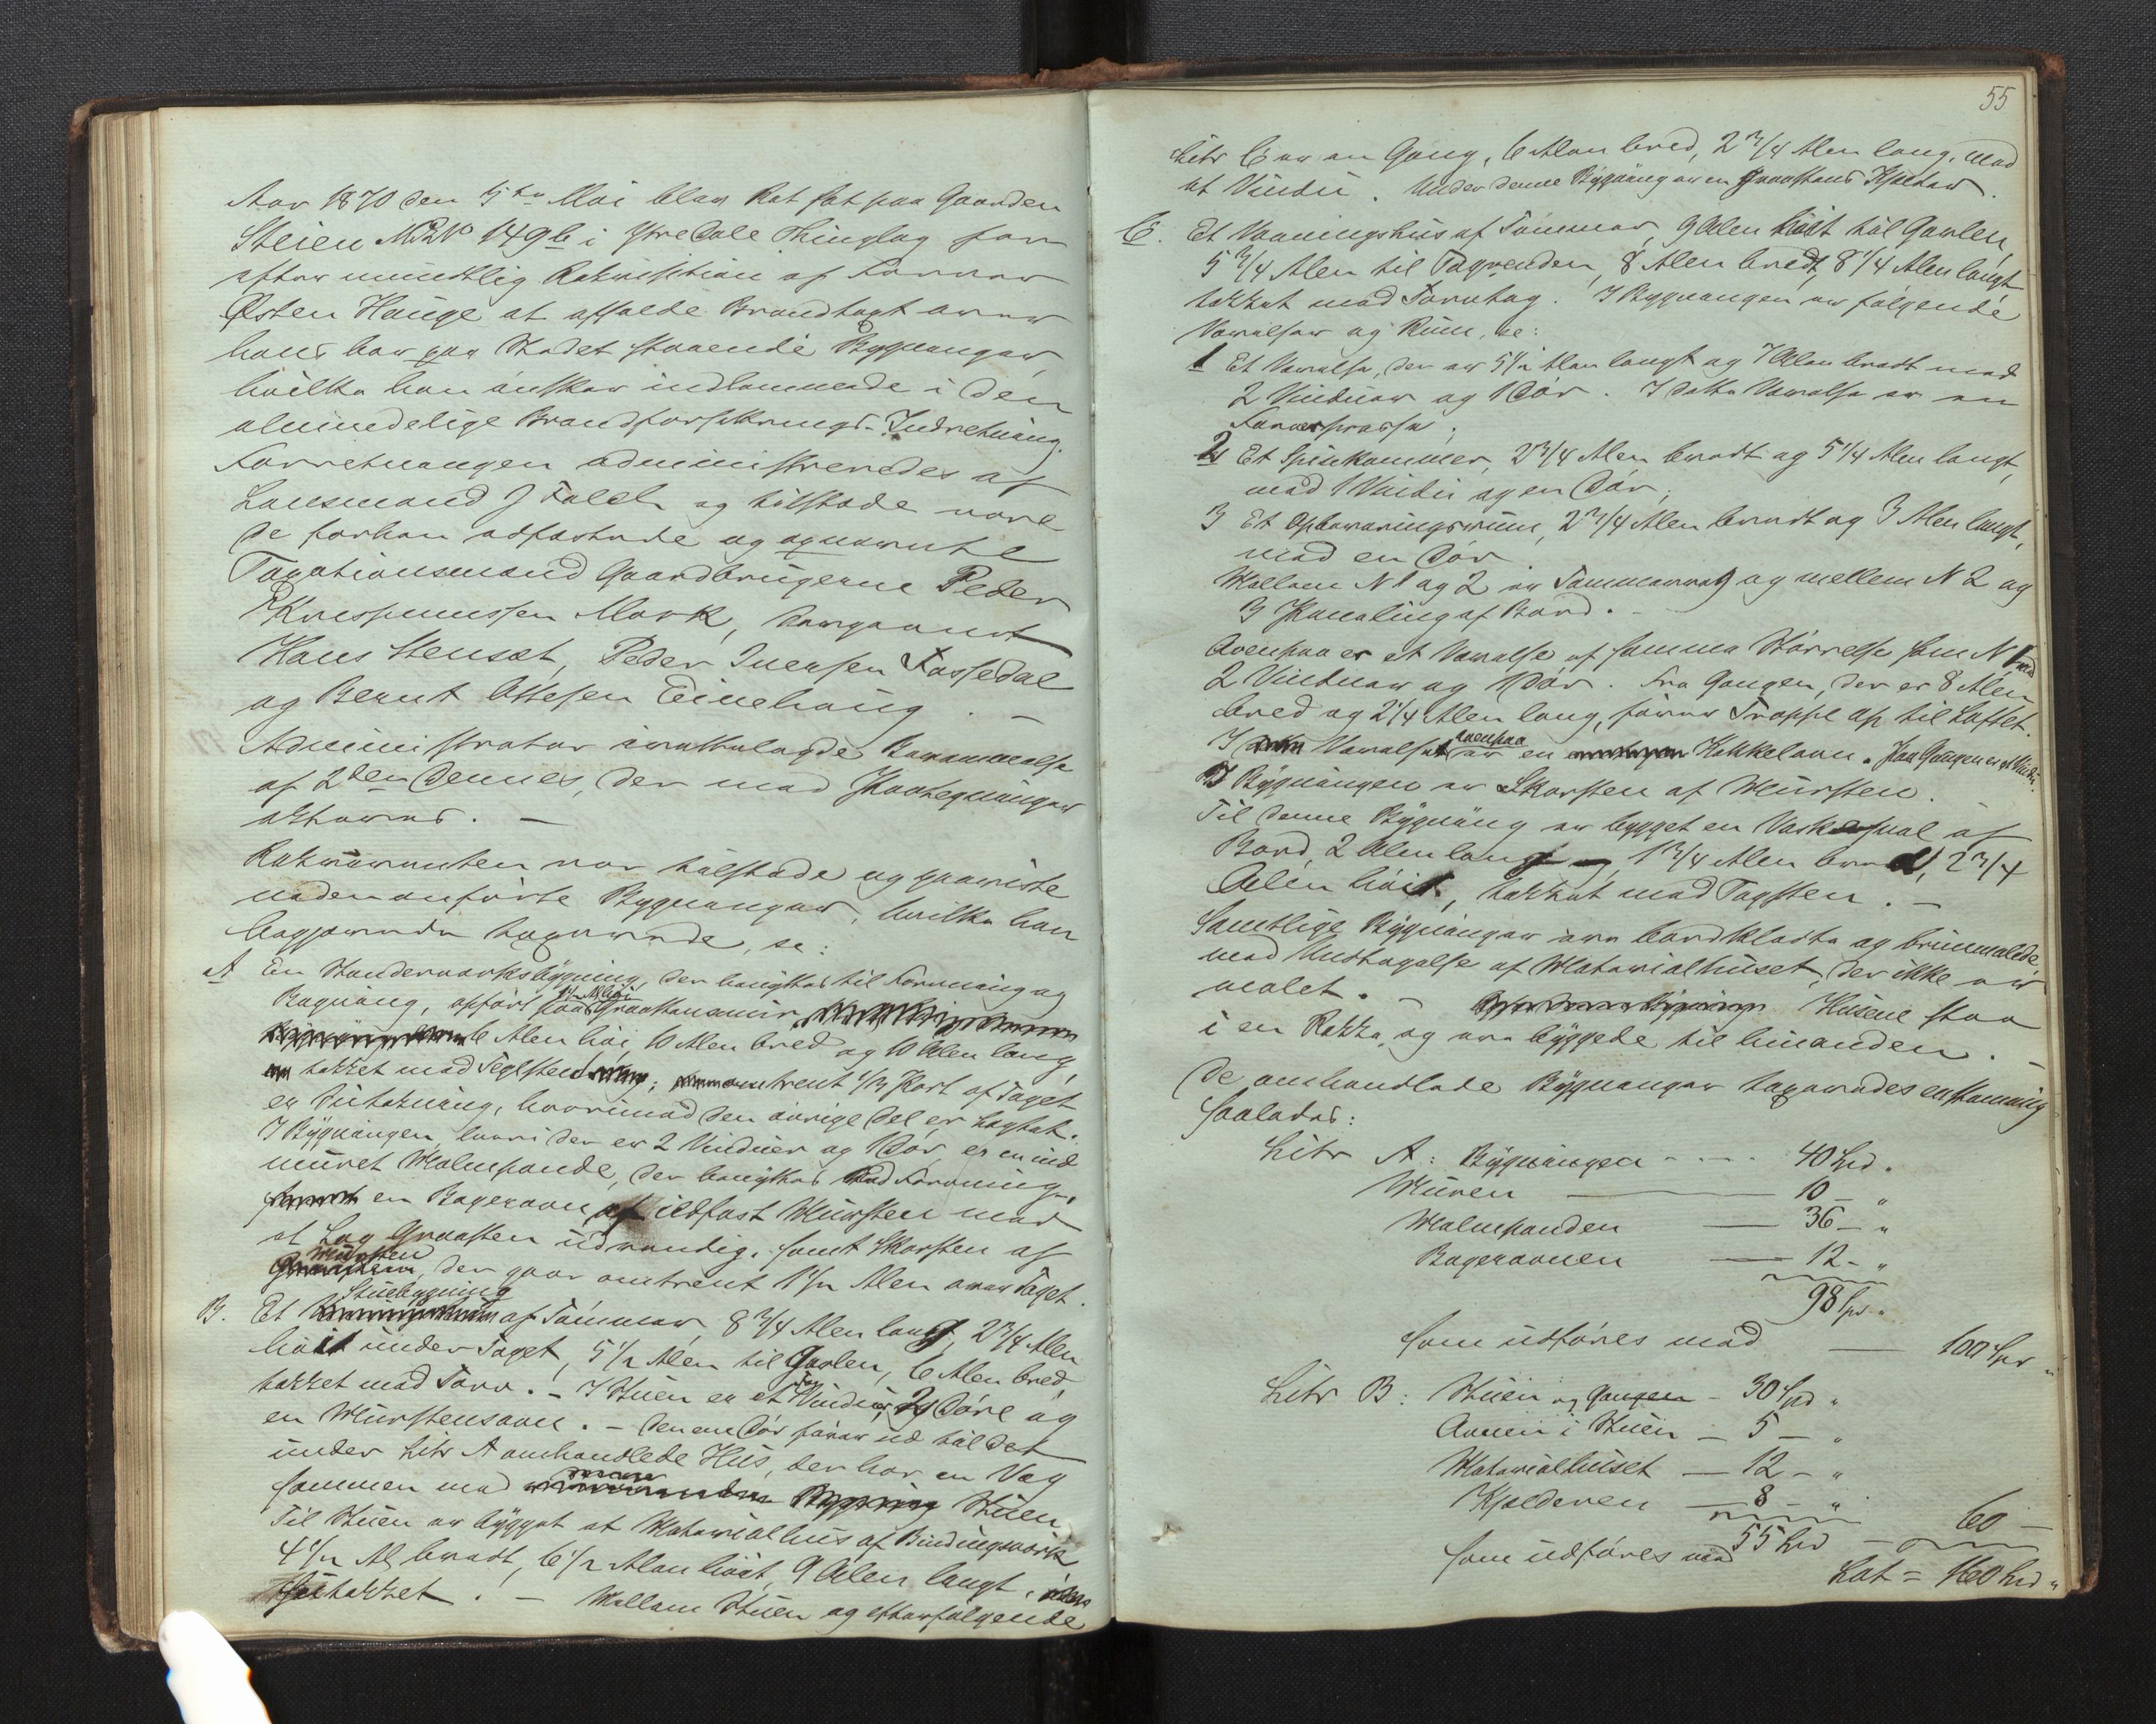 Aar 1870 den 5te Mai blev Ret sat paa Gaarden
Steien MNo 149b i Ytre Dale Thinglag for
efter mundtlig Rekvisition af Farver
Østen Hauge at afholde Brandtaxt over
hans her paa Stedet staaende Bygninger,
hvilke han ønsker indlemmede i den
almindelige Brandforsikrings-Indretning.
Forretningen administreredes af
Lensmand J Falch og tilstede vare
de forhen edfæstede og opnævnte
Taxationsmænd Gaardbrugerne Peder
Rasmussen Mork,
Hans Stenset, Peder Iversen Fossedal
og Bernt Ottesen Einehaug. —
Administrator fremlagde Bekrammelse
af 2den dennes, der med Paategninger
vedtages. —
Rekvirenten var tilstede og paaviste
nedenanførte Bygninger, hvilke han
begjærede taxerede, se:
A En Standerværksbygning, der benyttes til Farvning og
Bagning, opført paa 1½ Al høi Graastensmur
6 Alen høi, 10 Alen bred og 10 Alen lang,
tækket med Teglsten; omtrent 1/3 Part af Taget
er Sutækning, hvorimod den øvrige Del er tegltæk.
I Bygningen, hvori der er 2 Vinduer og 1 Dør, er en ind
muret Malmpande, der benyttes ved Farvning,
en Bagerovn af ildfast Mursten med
et Lag Graasten udvendig, samt Skorsten af
Mursten, der gaar omtrent 1½ Alen over Taget.
B. Et Stuebygning af Tømmer, 8¾ Alen langt, 2¾ Alen
høit under Taget, 5½ Alen til Gavlen, 6 Alen bred,
tækket med Torv. – I Stuen er et Vindu, 2 Døre og
en Murstensovn. – Den ene Dør fører ud til det
under Litr A omhandlede Hus, der har en Væg
sammen med denne Stuen
Til Stuen er bygget et Materialhus af Bindingsværk
4½ Al bredt, 6½ Alen høit, 9 Alen langt,
tækket. — Mellem Stuen og efterfølgende
55
Litr C er en Gang, 6 Alen bred, 2¾ Alen lang, med
et Vindu. Under denne Bygning er en Graastens Kjelder.
C. Et Vaaningshus af Tømmer, 9 Alen høit til Gavlen,
5¾ Alen til Tagrenden, 8 Alen bredt, 8¼ Alen langt,
tækket med Torvtag. I Bygningen er følgende
Værelser og Rum, se:
1 Et Værelse, der er 5½ Alen langt og 7 Alen bredt med
2 Vinduer og 1 Dør. I dette Værelse er en
Farverpresse;
2 Et Spisekammer, 2¾ Alen bredt og 5¼ Alen langt,
med 1 Vindu og en Dør;
3 Et Opbevaringsrum, 2¾ Alen bredt og 3 Alen langt,
med en Dør
Mellem N 1 og 2 er Tømmervæg og mellem N 2 og
3 Paneling af Bord. –
Ovenpaa er et Værelse af samme Størrelse som N 1 med
2 Vinduer og 1 Dør. Fra Gangen, der er 8 Alen
bred og 2¼ Alen lang, fører Trappe op til Loftet.
I Værelset ovenpaa er en Kakkelovn. Paa Gangen er et Vindu.
I Bygningen er Skorsten af Mursten.
Til denne Bygning er bygget en Vaskesval af
Bord, 2 Alen lang og 1¾ Alen bred, 2¾
Alen høit, tækket med Tagsten. –
Samtlige Bygninger ere bordklædte og brunmalede,
med Undtagelse af Materialhuset, der ikke er
malet. – Husene staa
i en Række og ere byggede til hinanden. –
De omhandlede Bygninger taxeredes enstemmig
saaledes:
Litr A: Bygningen - - - - 40 Spd.
Muren — 10 — "
Malmpanden — 36 — "
Bagerovnen — 12 – "
98 Spd.
Som udføres med — 100 Spd "
Litr B: Stuen og Gangen – 30 Spd "
Ovnen i Stuen — 5 — "
Materialhuset — 12 — "
Kjelderen — 8 — "
55 Spd
Som udføres med — 60 —
Lat = 160 Spd "